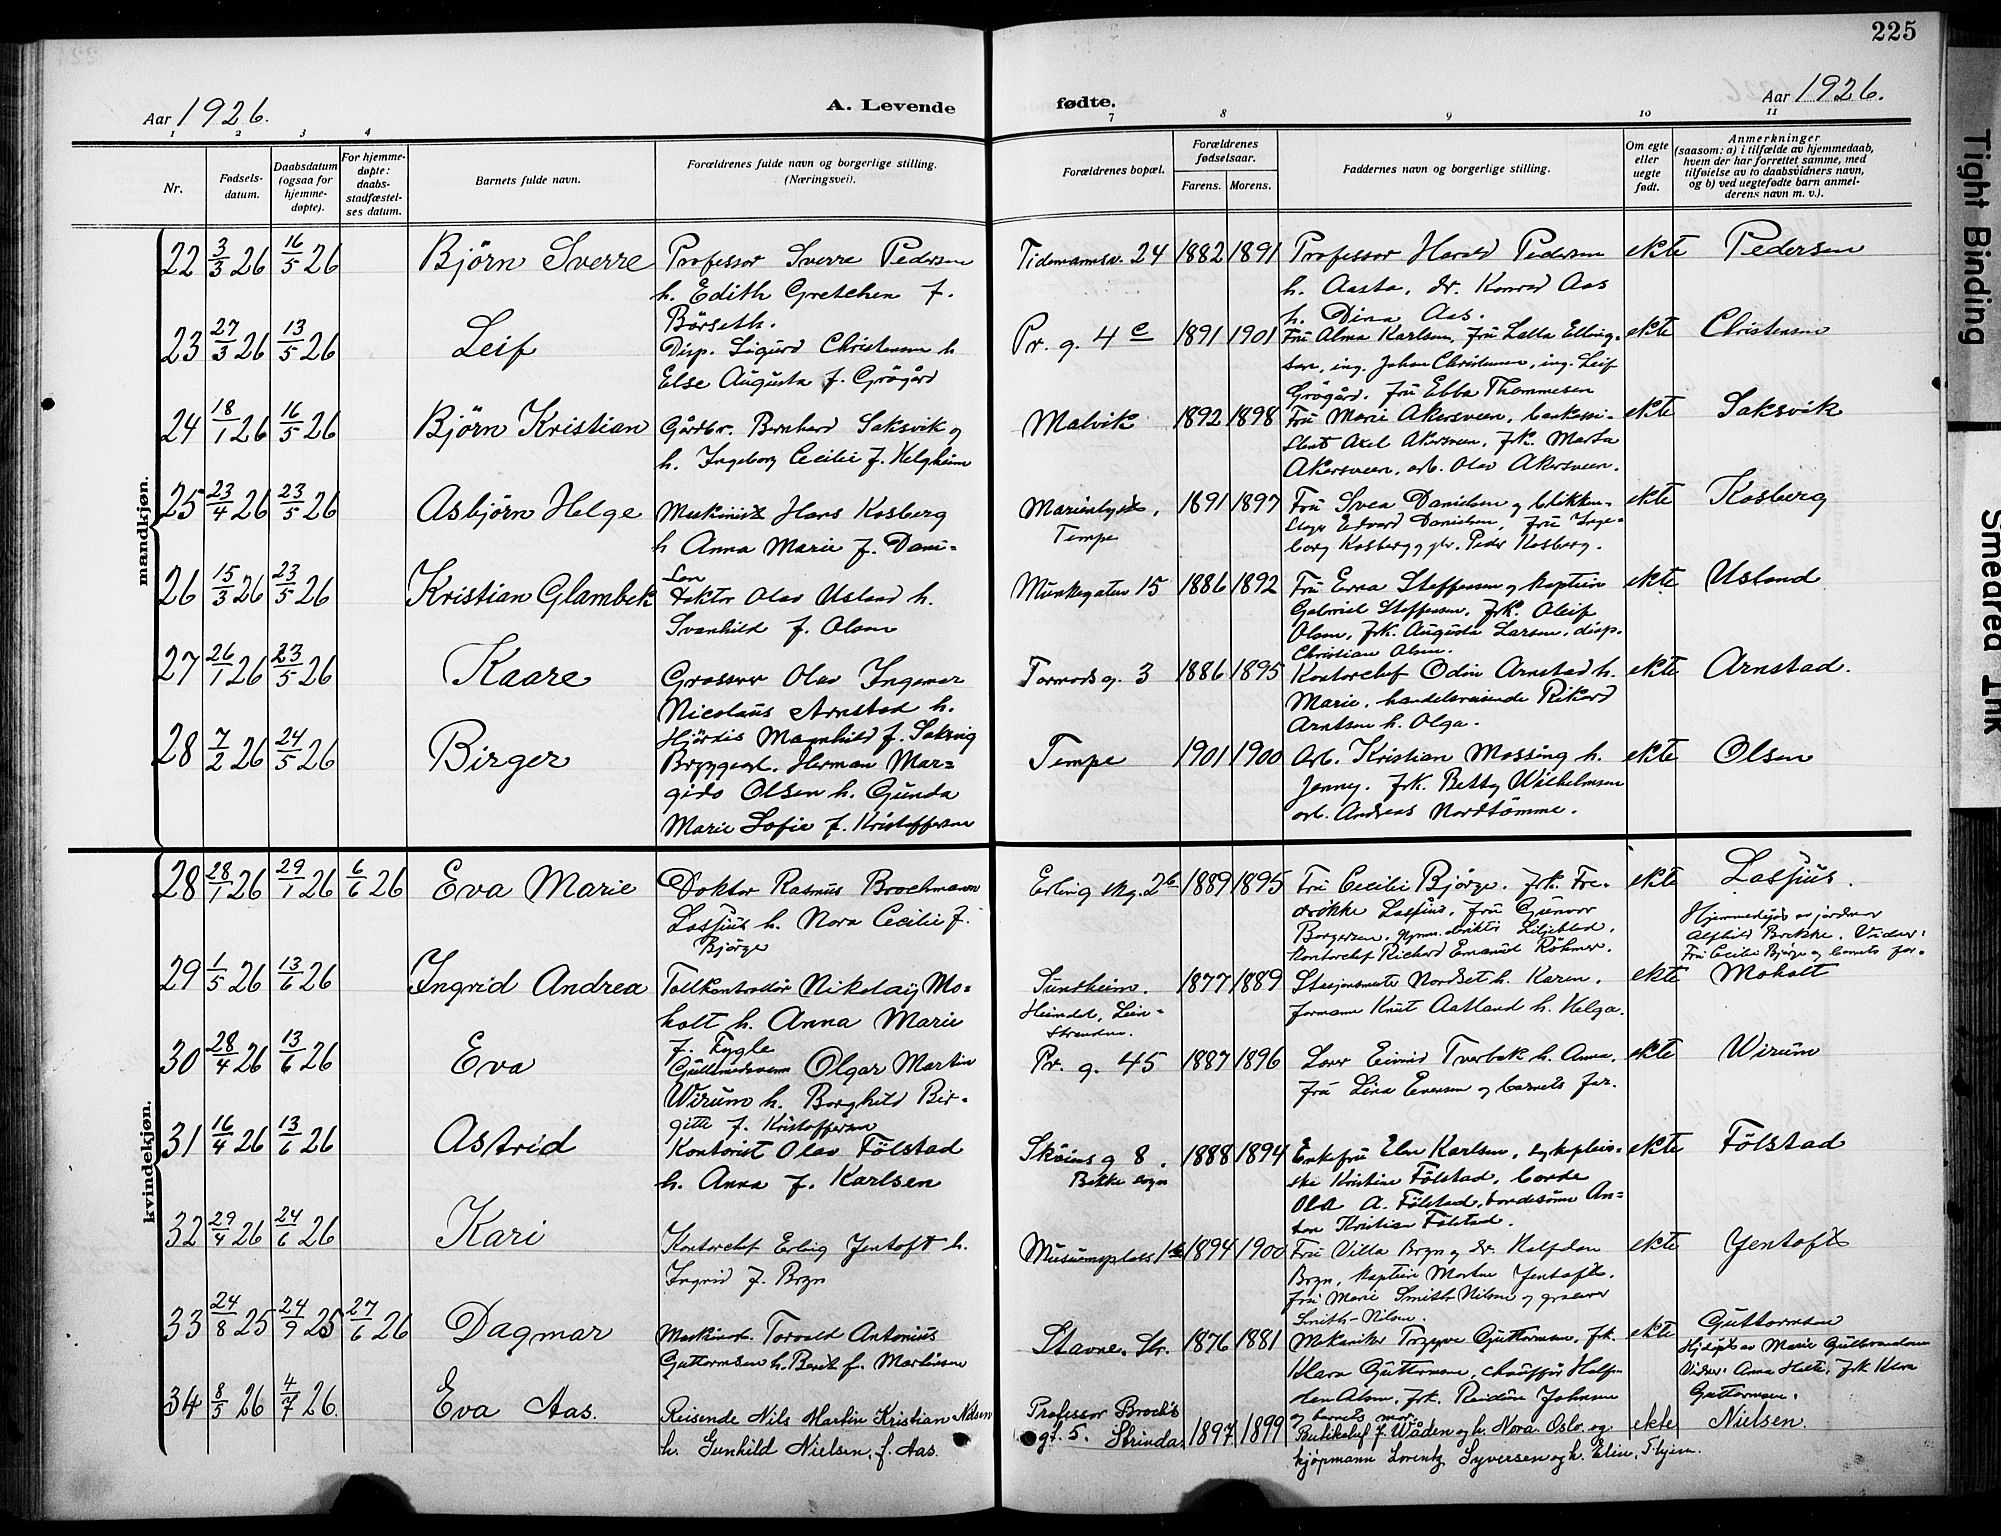 225
Aar 1926.
A. Levende
fødte.
Aar 1926.
1 2 3 4
7 8 9 10 11
Nr.
Fødsels-
datum.
Daabsdatum
(ogsaa for
hjemme-
døpte).
For hjemme-
døpte:
daabs-
stadfæstel-
ses datum.
Barnets fulde navn.
Forældrenes fulde navn og borgerlige stilling.
(Næringsvei).
Forældrenes bopæl.
Forældrenes
fødselsaar.
Farens. Morens.
Faddernes navn og borgerlige stilling.
Om egte
eller
uegte
født.
Anmerkninger
(saasom: a) i tilfælde av hjemmedaab,
hvem der har forrettet samme, med
tilføielse av to daabsvidners navn,
og b) ved uegtefødte barn anmel-
derens navn m. v.).
mandkjøn.
22 3/3 26 16/5 26 Bjørn Sverre
Professor Sverre Pedersen
h. Edith Gretchen f.
Börseth.
Tidemannsv. 24 1882 1891
Professor Harald Pedersen
h. Aasta, dr. Konrad Aas
h. Dina Aas.
ekte Pedersen
23 27/3 26 13/5 26 Leif
Disp. Sigurd Christensen h
Else Augusta f. Grögård
Pr. g. 4 c 1891 1901
Fru Alma Karlsen, Fru Lalla Elling-
sen, ing. Johan Christensen, ing. Leif
Grögård. Fru Ebba Thommesen
ekte Christensen
24 18/1 26 16/5 26 Björn Kristian
Gårdbr. Bernhard Saksvik og
h. Ingeborg Cecilie f. Helgheim
Malvik 1892 1898
Fru Marie Akersveen,
Axel Akersveen, frk. Marta
Akersveen, arb. Olav Akersveen.
ekte Saksvik
25 23/4 26 23/5 26 Asbjörn Helge
Maskinist Hans Kosberg
h Anna Marie f. Dani-
sen
Marienlyst,
Tempe
1891 1897
Fru Svea Danielsen og blikken-
slager Edvard Danielsen, Fru Inge-
borg Kosberg og gbr. Peder Kosberg.
ekte Kosberg
26 15/3 26 23/5 26 Kristian Glambek
Doktor Olav Usland h.
Svanhild f. Olsen
Munkegaten 15 1886 1892
Fru Ewa Steffensen og kaptein
Gabriel Steffensen, Frk.
Olsen, Frk. Augusta Larsen, disp.
Christian Olsen.
ekte Usland
27 26/1 26 23/5 26 Kaare
Grosserer Olav Ingemar
Nicolaus Arnstad h.
Hjördis Magnhild f. Saksvig
Tormods g. 3 1886 1895
Kontorchef Odin Arnstad h.
Marie, handelsreisende Rikard
Arntsen h. Olga.
ekte Arnstad.
28 7/2 26 24/5 26 Birger
Bryggearb. Herman Mar-
gido Olsen h. Gunda
Marie Sofie f. Kristoffersen
Tempe 1901 1900
Arb. Kristian Mossing h.
Jenny. Frk. Betty Wilhelmsen
arb. Andreas Nordtömme.
ekte Olsen
kvindekjøn.
28 28/1 26 29/1 26 6/6 26 Eva Marie
Doktor Rasmus Brochmann
Lossius h. Nora Cecilie f.
Bjørge
Erling skg. 26 1889 1895
Fru Cecilie Bjørge. Frk. Fre-
drikke Lossius, Fru Gunvor
Borgersen, gymn. direktör Liljeblad,
Kontorchef Richard Emanuel Röhmer.
ekte Lossius.
Hjemmedøpt av jordmor
Alfhild Brekke. Vidner:
Fru Cecilie Bjørge og barnets far.
29 1/5 26 13/6 26 Ingrid Andrea
Tollkontrollör Nikolaij Mo-
holt h. Anna Marie
f. Fygle
Sunnheim.
Heimdal, Lein-
stranden.
1877 1889
Stasjonsmester Nordset h. Karen.
formann Knut Aatland h. Helga.
ekte Moholt
30 28/4 26 13/6 26 Eva
Gullsmedsvenn Olgar Martin
Wirum h. Borghild Bir-
gitte f. Kristoffersen
Pr. g. 45 1887 1896
Loser Eivind Tverbak h. Anna.
Fru Lina Evensen og barnets far.
ekte Wirum
31 16/4 26 13/6 26 Astrid
Kontorist Olav Fölstad
h. Anna f. Karlsen
Skåun s g 8.
Bakke sogn
1888 1894
Enkefru Elen Karlsen, sykeplei-
ske Kristine Fölstad, bonde
Ola A. Fölstad, bondesönn An-
ton Kristian Fölstad.
ekte Fölstad
32 29/4 26 24/6 26 Kari
Kontorchef Erling Jentoft h.
Ingrid f. Bryn
Museumsplass 1 1894 1900
Fru Villa Bryn og dr. Halfdan
Bryn, kaptein Morten Jentoft.
Fru Marie Smith Nilsen og grosserer
Smith-Nilsen.
ekte Jentoft
33 24/8 25 24/9 25 27/6 26 Dagmar
Maskinarb. Torvald Antonius
Guttormsen h. Berit f. Martinsen
Stavne, Str. 1876 1881
Mekaniker Trygve Guttormsen, Frk.
Klara Guttormsen, chauffør Half-
dan Olsen, Frk. Reidun Johnsen
og barnets mor.
ekte Guttormsen
Hjdöpt av Marie Gulbrandsen
Vidner: Anna Holte, Frk Klara
Guttormsen.
34 8/5 26 4/7 26. Eva Aas.
Reisende Nils Martin Kristian Nilsen
h. Gunhild Nielsen, f. Aas.
Professor Brochs
gt. 5. Strinda. 1897 1899
Butikchef J. Wåden og h. Nora. Oslo. og
kjøpmann Lorentz Syversen og h. Elin,
ekte Nielsen.
Tight Binding
Smeared Ink